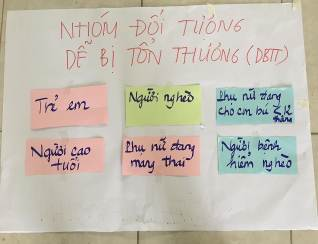 NHÓM ĐỐI TƯỢNG
DỄ BỊ TỔN THƯƠNG (DBTT)
Trẻ em
Người nghèo
Phụ nữ đang
cho con bú
Người cao
tuổi
Phụ nữ đang
mang thai
Người bệnh
hiểm nghèo